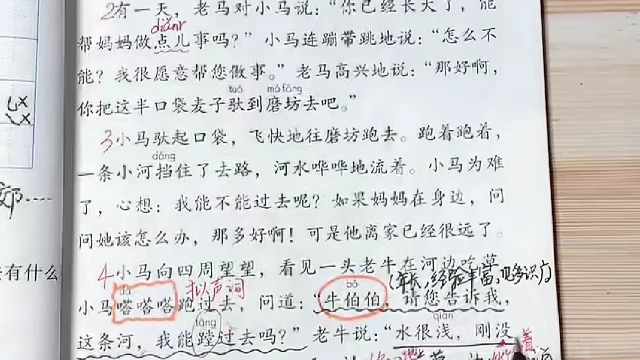 2有一天，老马对小马说：“你已经长大了，能
diǎnr
帮妈妈做点儿事吗？”小马连蹦带跳地说：“怎么不
能？我很愿意帮您做事。”老马高兴地说：“那好啊，
tuó mò fáng
你把这半口袋麦子驮到磨坊去吧。”
3小马驮起口袋，飞快地往磨坊跑去。跑着跑着，
dǎng
一条小河挡住了去路，河水哗哗地流着。小马为难
了，心想：我能不能过去呢？如果妈妈在身边，问
问她该怎么办，那多好啊！可是他离家已经很远了。
4小马向四周望望，看见一头老牛在河边吃草
年长，经验丰富，见多识广
dā 拟声词 bó
小马嗒嗒嗒跑过去，问道：“牛伯伯，请您告诉我，
tāng qiǎn
这条河，我能蹚过去吗？”老牛说：“水很浅，刚没
着
去有什么